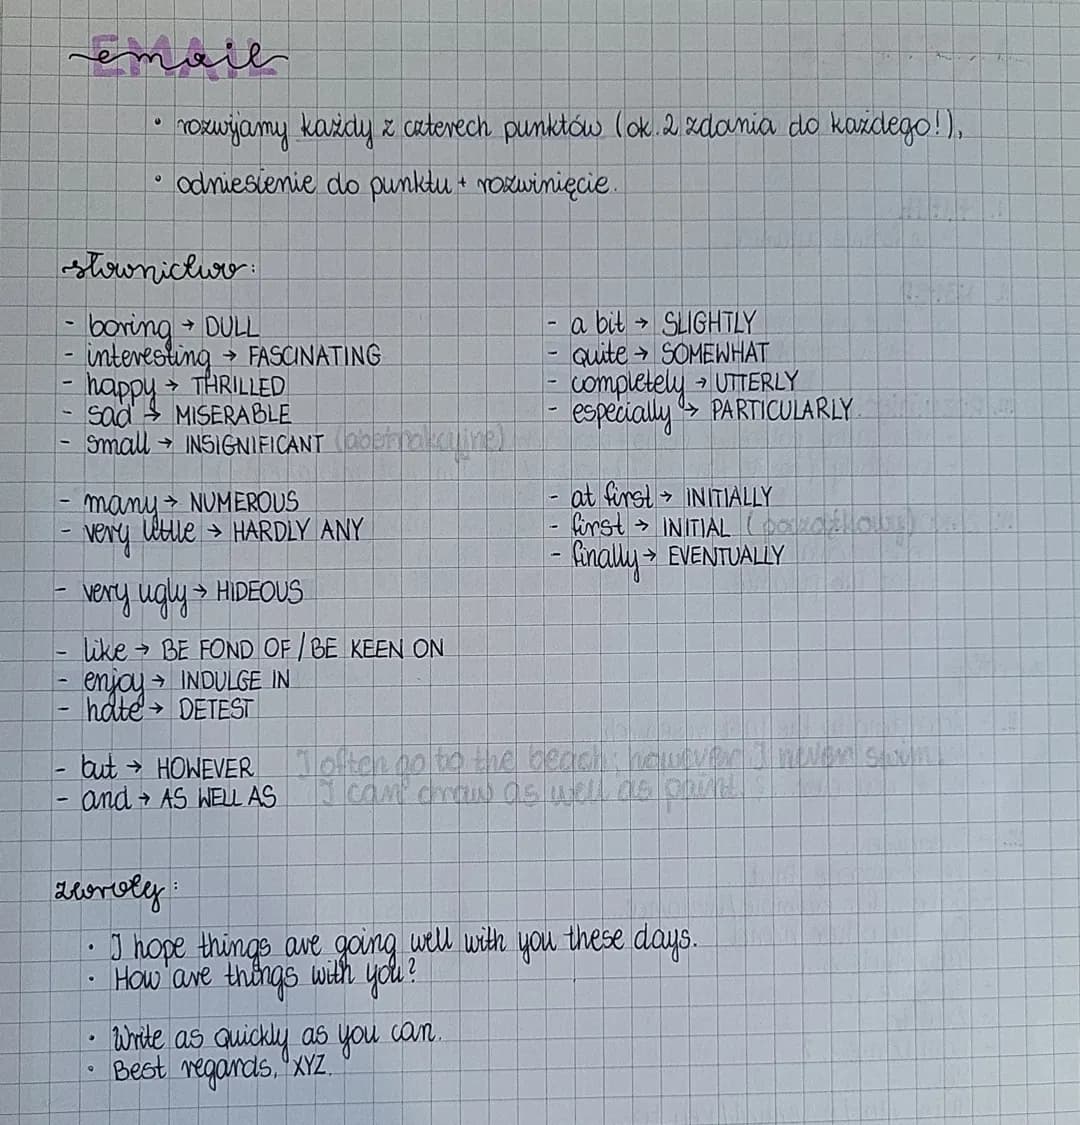 email
• rozwijamy każdy z czterech punktów (ok. 2 zdania do każdego!),
• odniesienie do punktu + rozwinięcie.
słownictwo:
- boring → DULL
- interesting → FASCINATING
- happy → THRILLED
- sad → MISERABLE
- small → INSIGNIFICANT (abstrakcyjne)
- many → NUMEROUS
- very little → HARDLY ANY
- very ugly → HIDEOUS
- like → BE FOND OF / BE KEEN ON
- enjoy → INDULGE IN
- hate → DETEST
- but → HOWEVER I often go to the beach; however I never swim.
- and → AS WELL AS I can draw as well as paint.
- a bit → SLIGHTLY
- quite → SOMEWHAT
- completely → UTTERLY
- especially → PARTICULARLY.
- at first → INITIALLY
- first → INITIAL (początkowy)
- finally → EVENTUALLY
zwroty:
• I hope things are going well with you these days.
• How are things with you?
• Write as quickly as you can.
• Best regards, XYZ.